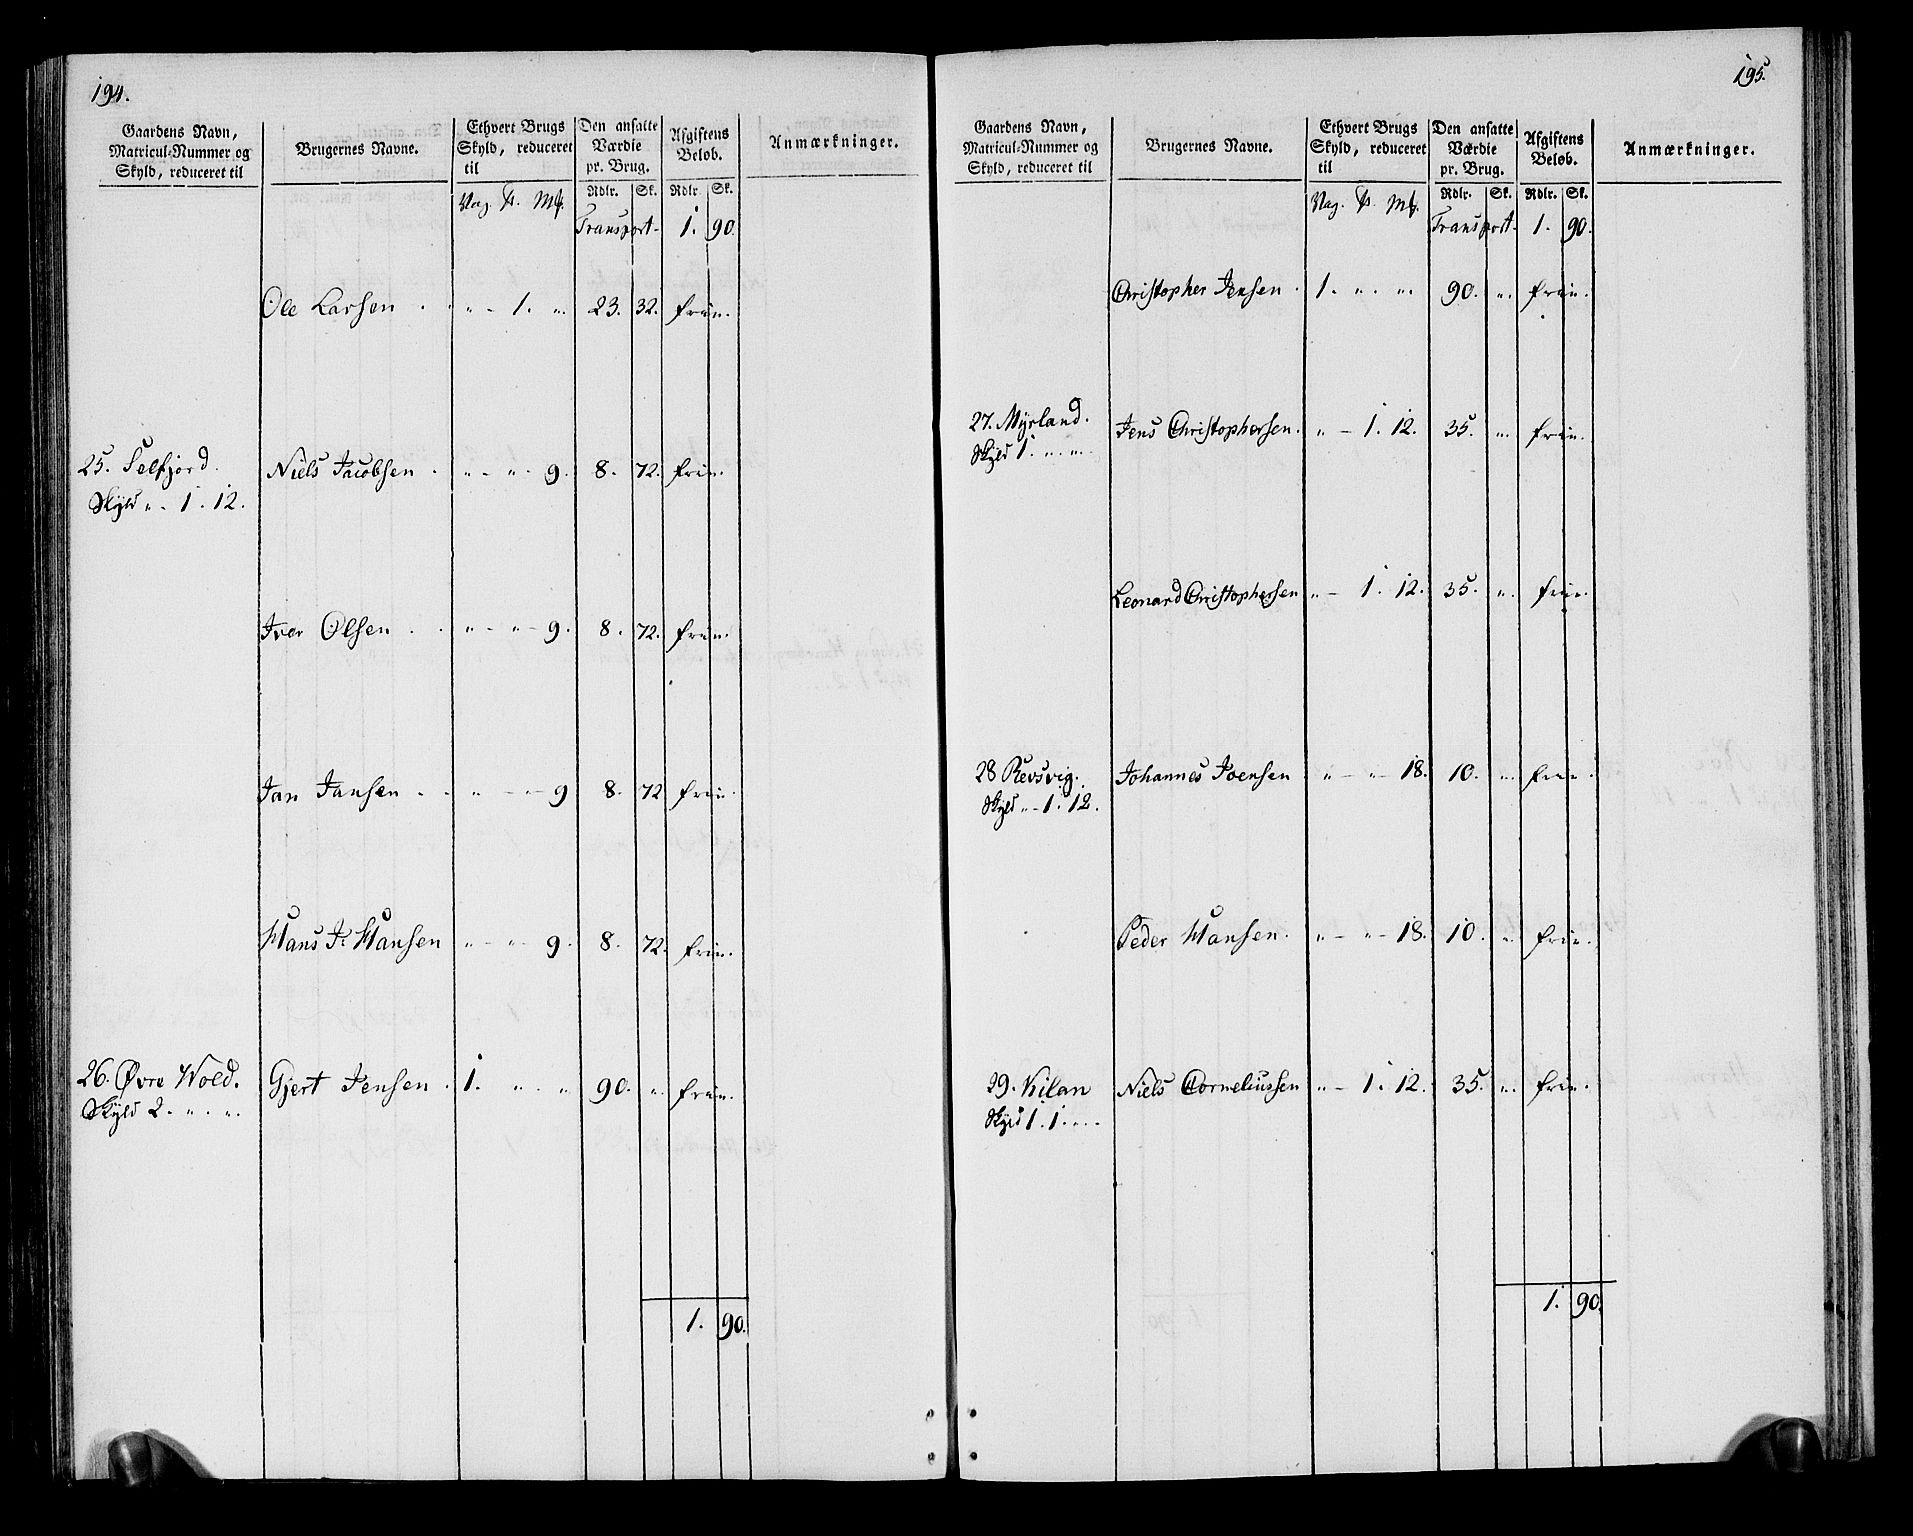 194.
Gaardens Navn, Matricul-Nummer og Skyld, reduceret til | Brugernes Navne. | Ethvert Brugs Skyld, reduceret til | Den ansatte Værdie pr. Brug. | Afgiftens Beløb. | Anmærkninger.
Vog. ℔. Mk. | Rdlr. | Sk. | Rdlr. | Sk.
Transport- 1. 90.
Ole Larsen . . „ - 1. „. 23. 32. frie.
25. Selfjord. Niels Jacobsen . „ - „ - 9. 8. 72. frie.
Skyld „ - 1. 12.
Iver Olsen . . „ - „ - 9. 8. 72. frie.
Jan Jansen . . „ - „ - 9 8. 72 frie.
Hans J. Hansen „ - „ - 9. 8. 72. frie.
26. Øvre Wold. Gjert Jensen . 1. „ . „ 90. „. frie.
Skyld 2. „. „.
1. 90.
195.
Gaardens Navn, Matricul-Nummer og Skyld, reduceret til | Brugernes Navne. | Ethvert Brugs Skyld, reduceret til | Den ansatte Værdie pr. Brug. | Afgiftens Beløb. | Anmærkninger.
Vog. ℔. Mk. | Rdlr. | Sk. | Rdlr. | Sk.
Transport- 1. 90.
Christopher Jensen . 1. „. „. 90. „. frie.
27. Myrland. Jens Christophersen. „ - 1. 12. 35. „. frie.
Skyld 1. „. „.
Leonard Christophersen „ - 1. 12. 35. „. frie.
28 Revsvig. Johannes Joensen „ - „ - 18. 10. „. frie.
Skyld „ - 1. 12.
Peder Hansen. „ - „ - 18. 10. „. frie.
29. Kilan Niels Corneliussen „ - 1. 12. 35. „. frie.
Skyld 1. 1. „.
1. 90.